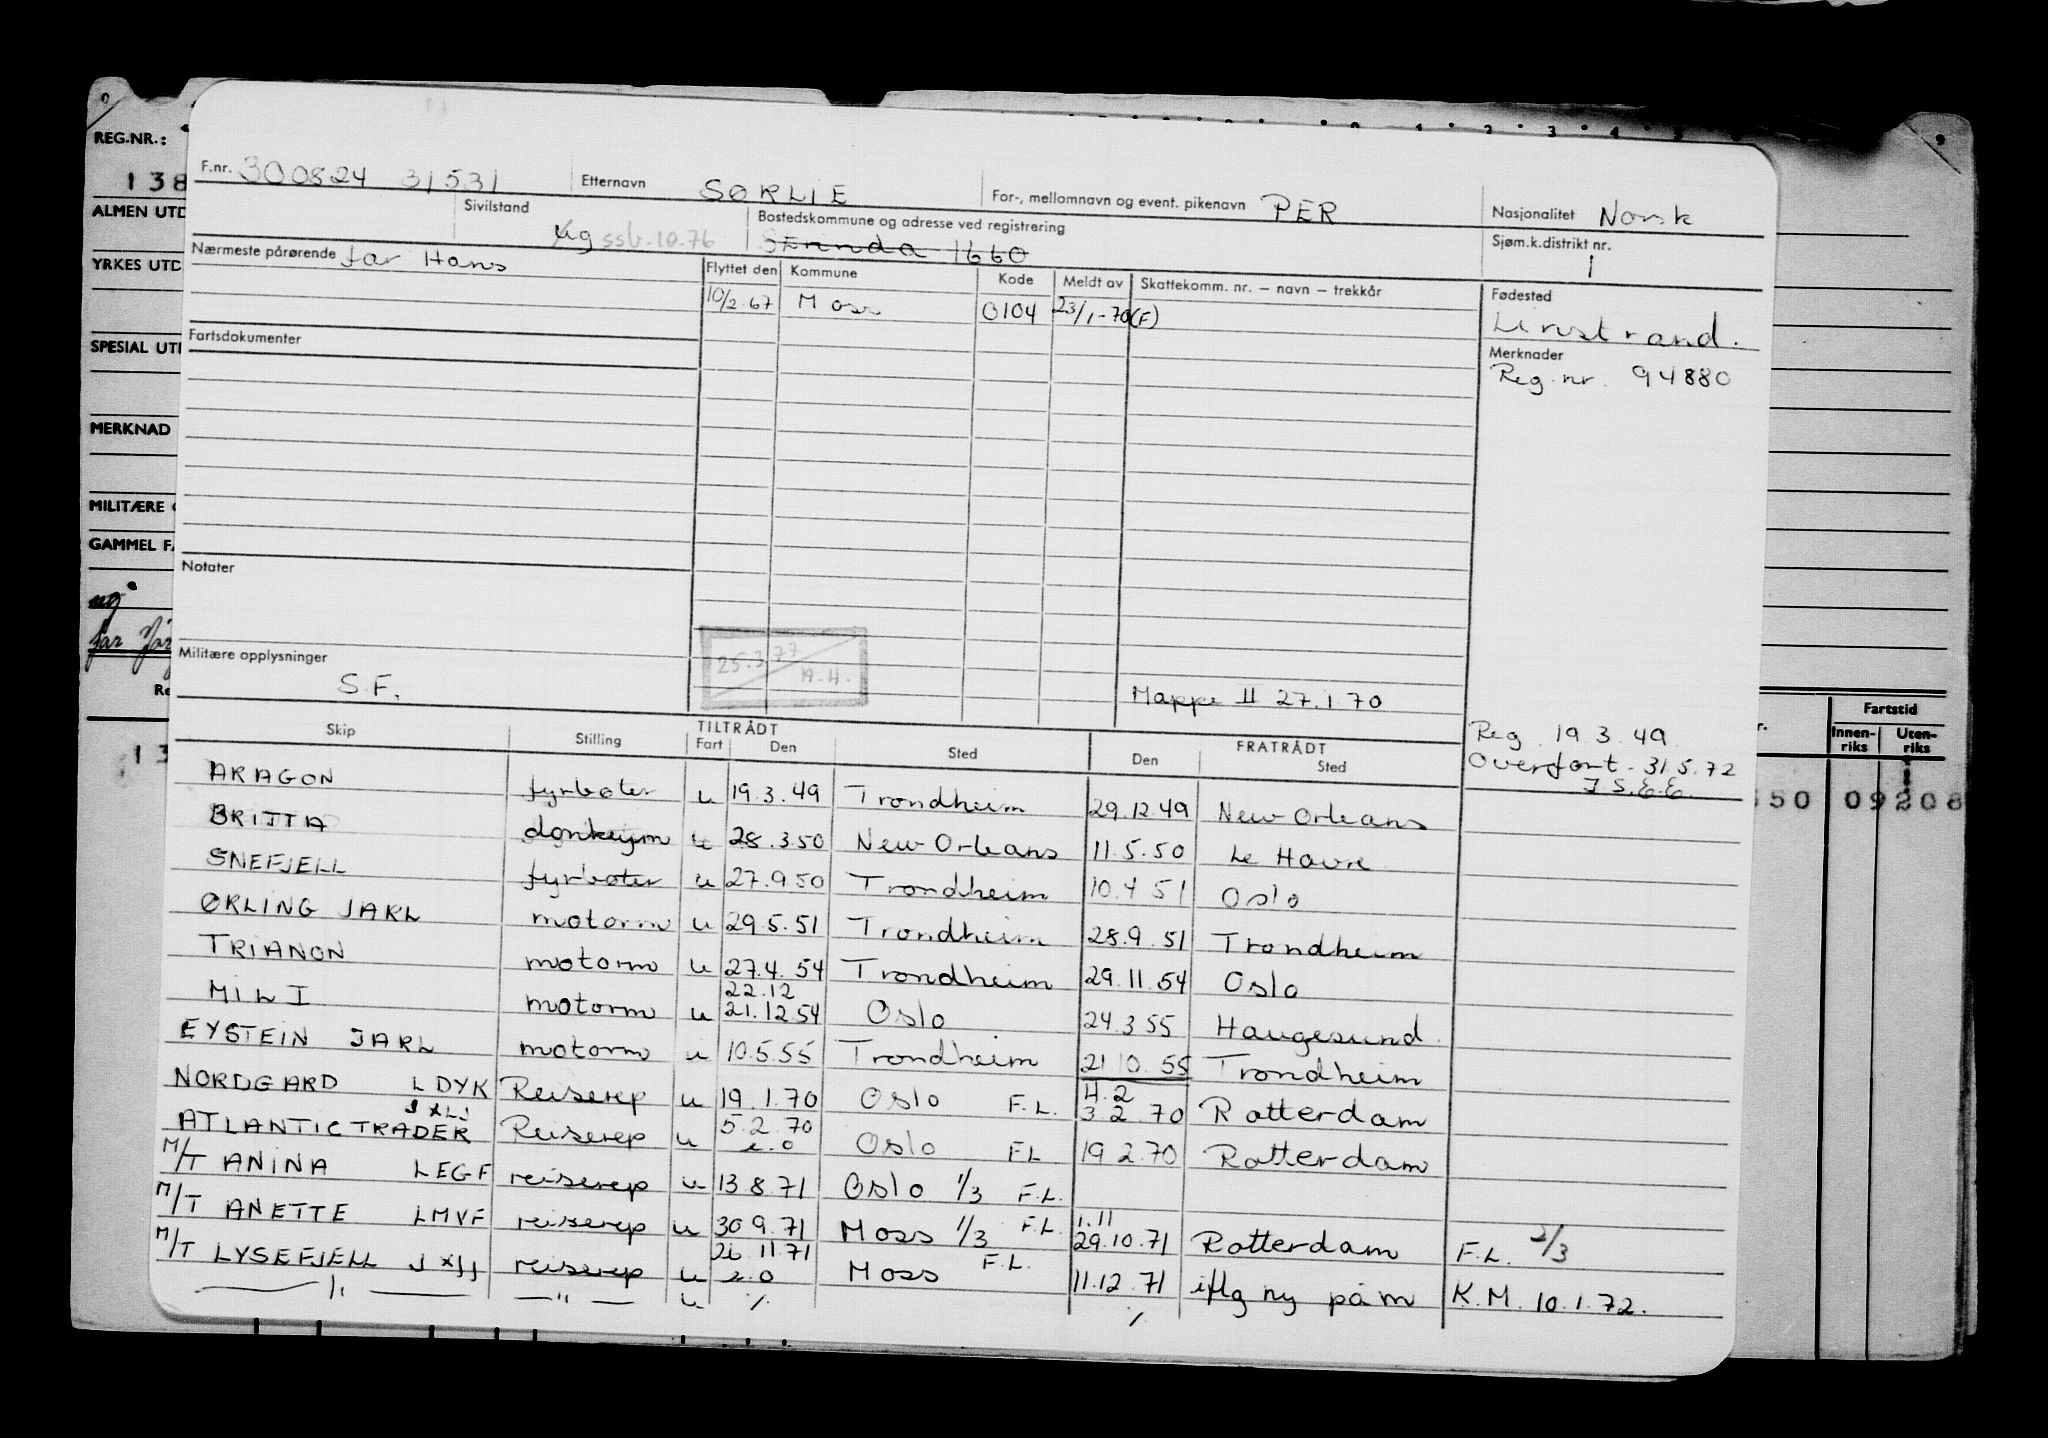 REG.NR.:
138
ALMEN UTD
YRKES UTD
SPESIAL UT
MERKNAD
MILITÆRE
GAMMEL F
ug
far
F.nr. 300824 31531 Etternavn SØRLIE For-, mellomnavn og event. pikenavn PER Nasjonalitet Norsk
Sivilstand ug ssb.10.76 Bostedskommune og adresse ved registrering Strinda 1660 Sjøm.k.distrikt nr. 1
Nærmeste pårørende far Hans
Flyttet den Kommune Kode Meldt av Skattekomm. nr. – navn – trekkår Fødested
10/2.67 Moss 0104 23/1-70(F) Leinstrand.
Fartsdokumenter
Merknader
Reg.nr. 94880
Notater
25.3.77
A.H.
Militære opplysninger
S.F.
Mappe II 27.1.70
Reg. 19.3.49
Overført - 31.5.72
Fartstid
Innen-riks Uten-riks
550 09 208
TILTRÅDT FRATRÅDT
Skip Stilling Fart Den Sted Den Sted
ARAGON fyrbøter u 19.3.49 Trondheim 29.12.49 New Orleans
BRITTA donkeym u 28.3.50 New Orleans 11.5.50 Le Havre
SNEFJELL fyrbøter u 27.9.50 Trondheim 10.4.51 Oslo
ØRLING JARL motorm u 29.5.51 Trondheim 28.9.51 Trondheim
TRIANON motorm u 27.4.54 Trondheim 29.11.54 Oslo
22.12
MILI motorm u 21.12.54 Oslo 24.3.55 Haugesund
EYSTEIN JARL motorm u 10.5.55 Trondheim 21.10.55 Trondheim
4.2
NORDGARD LDYK Reiserep u 19.1.70 Oslo F.L. 3.2.70 Rotterdam
JXLJ 5.2.70
ATLANTIC TRADER Reiserep u e.o Oslo FL 19.2.70 Rotterdam
M/T ANINA LEGF reiserep u 13.8.71 Oslo 1/3 F.L.
1.11
M/T ANETTE LMVF reiserep u 30.9.71 Moss 1/3 F.L. 29.10.71 Rotterdam F.L. 2/3
26.11.71
M/T LYSEFJELL JXJJ reiserep u e.o Moss F.L. 11.12.71 iflg ny påm K.M. 10.1.72.
— " — — " — u % %